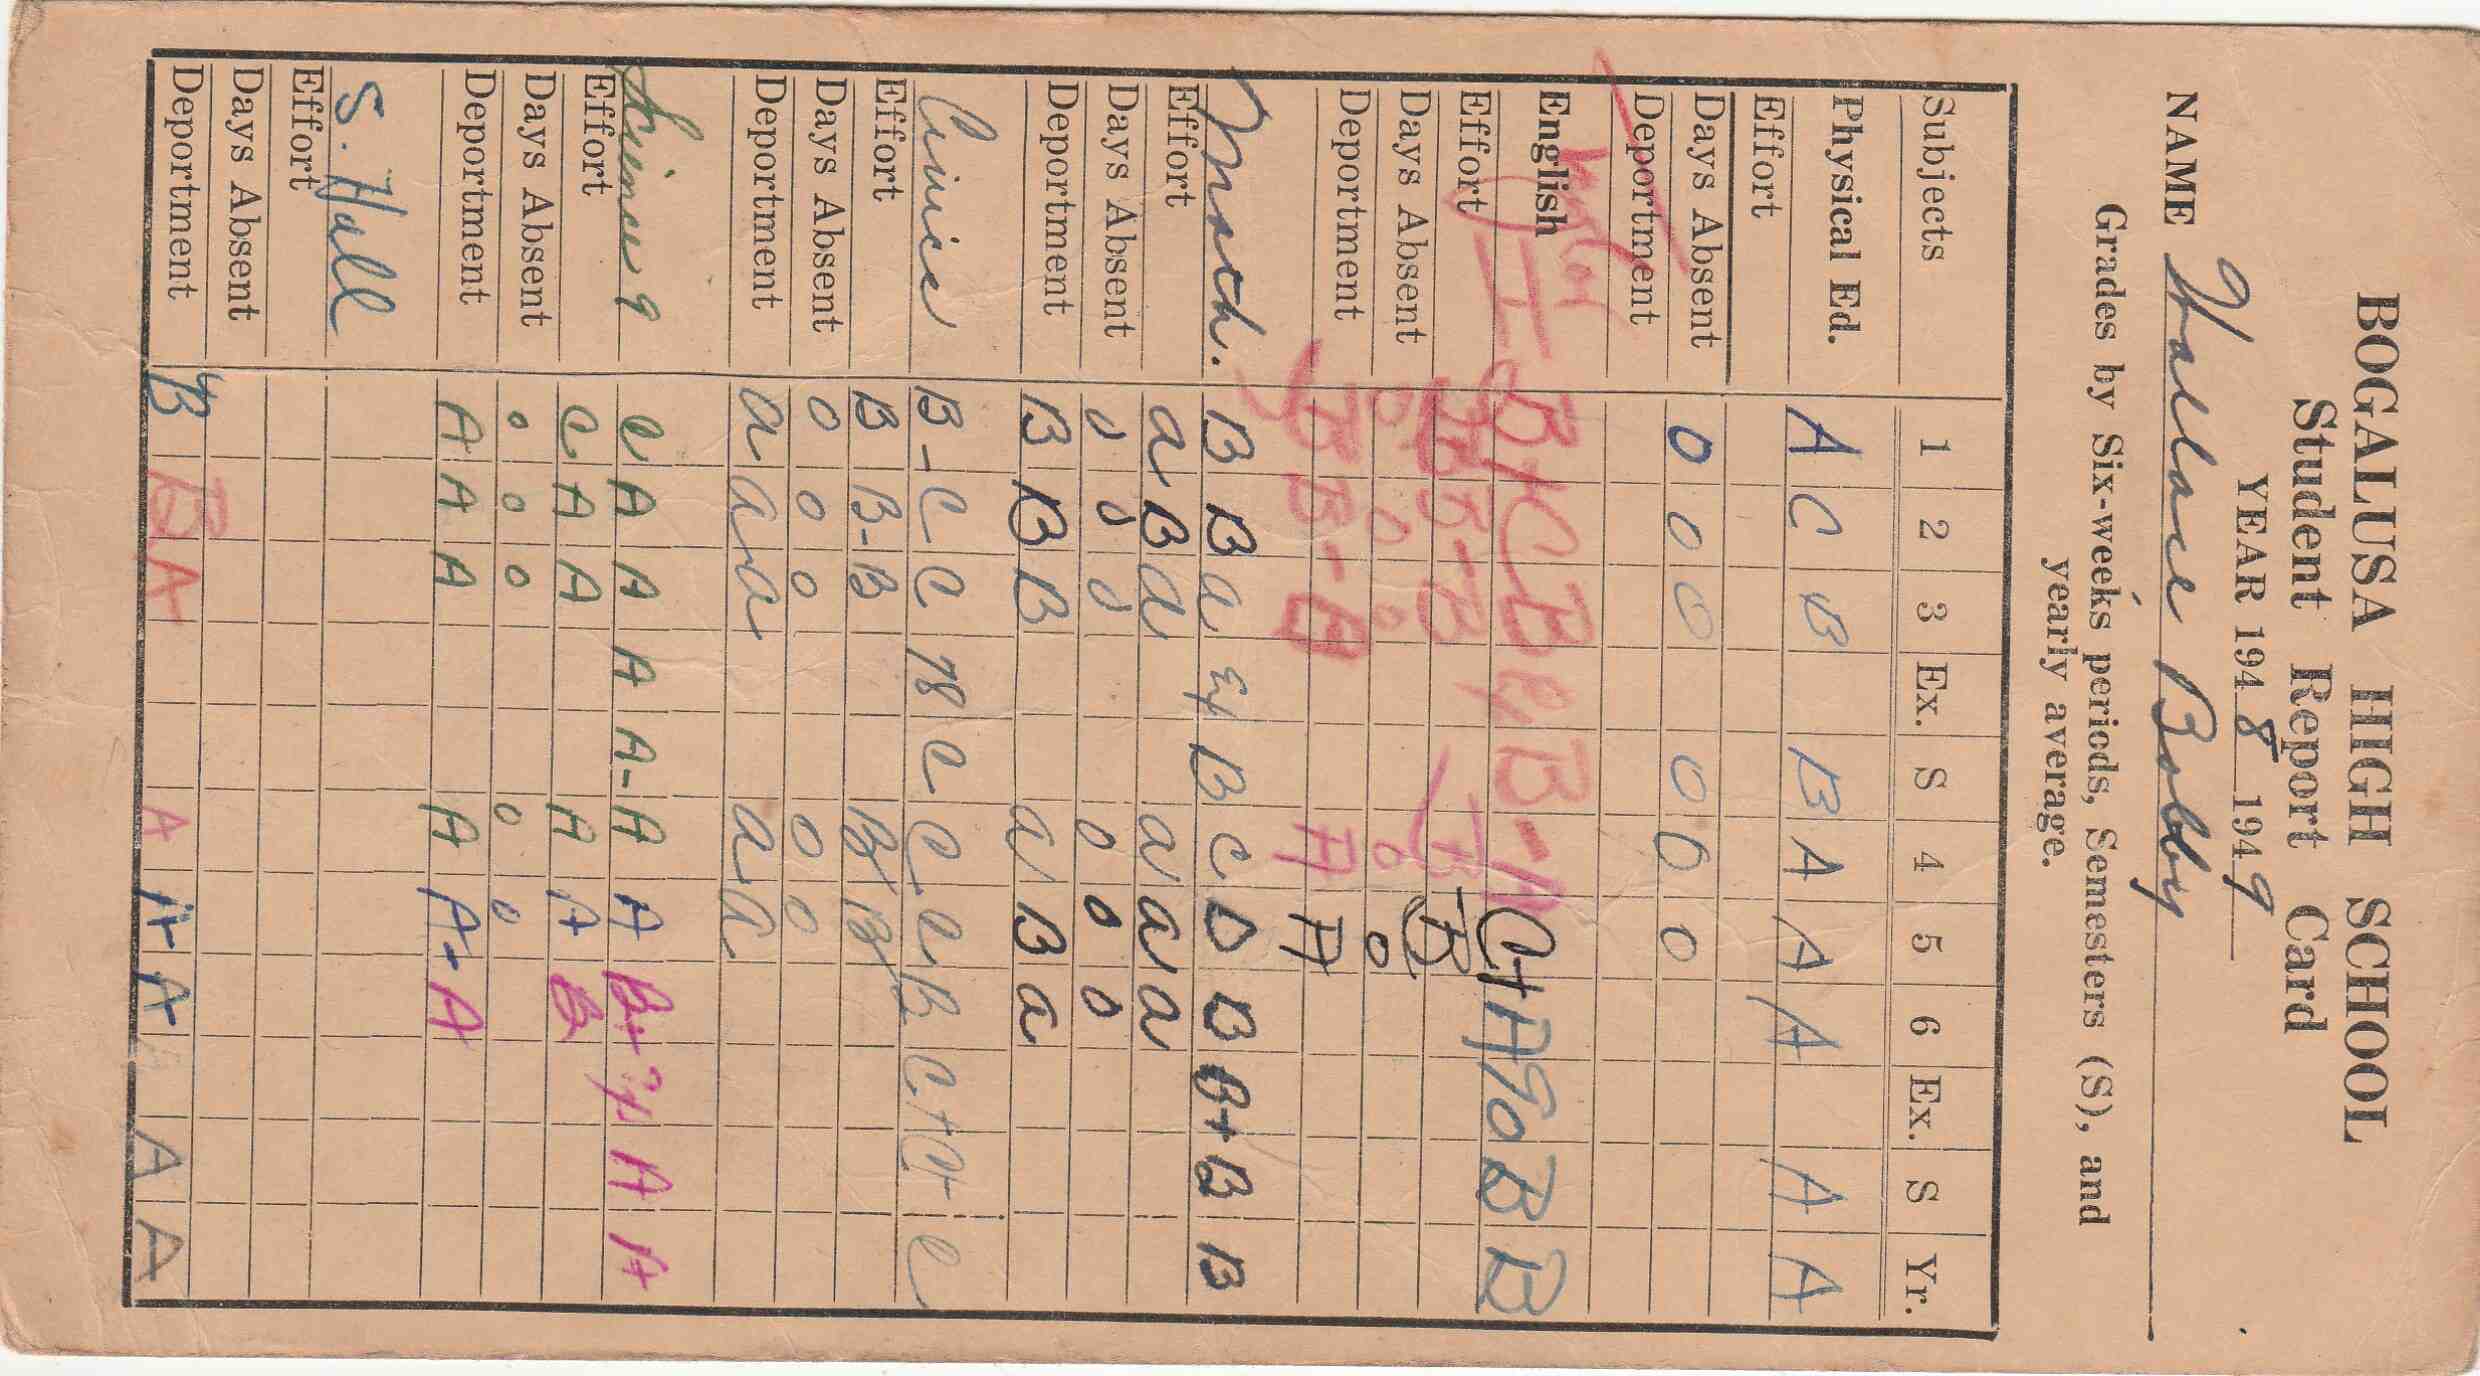 BOGALUSA HIGH SCHOOL
Student Report Card
YEAR 1948 1949
NAME Wallace Bobby
Grades by Six-weeks periods, Semesters (S), and
yearly average.
Subjects 1 2 3 Ex. S 4 5 6 Ex. S Yr.
Physical Ed. A C B B A A A A A
Effort
Days Absent 0 0 0 0 0 0
Deportment
English I B+ C B Ex B- A C+ A 90 B B
Effort B B- B B B
Days Absent 0 0 0 0 0
Deportment B B- B A A
Math. B B a Ex B C D B B+ B B
Effort a B a a a a
Days Absent 0 0 0 0 0 0
Deportment B B B a B a
Civics B- C C 78 C C C B C+ C+ C
Effort B B- B B B
Days Absent 0 0 0 0 0
Deportment a a a a a
Science 9 C A A A A- A A B+ A A
Effort C A A A A B
Days Absent 0 0 0 0 0
Deportment A A A A A- A
S. Hall
Effort
Days Absent
Deportment B B A A A A A A